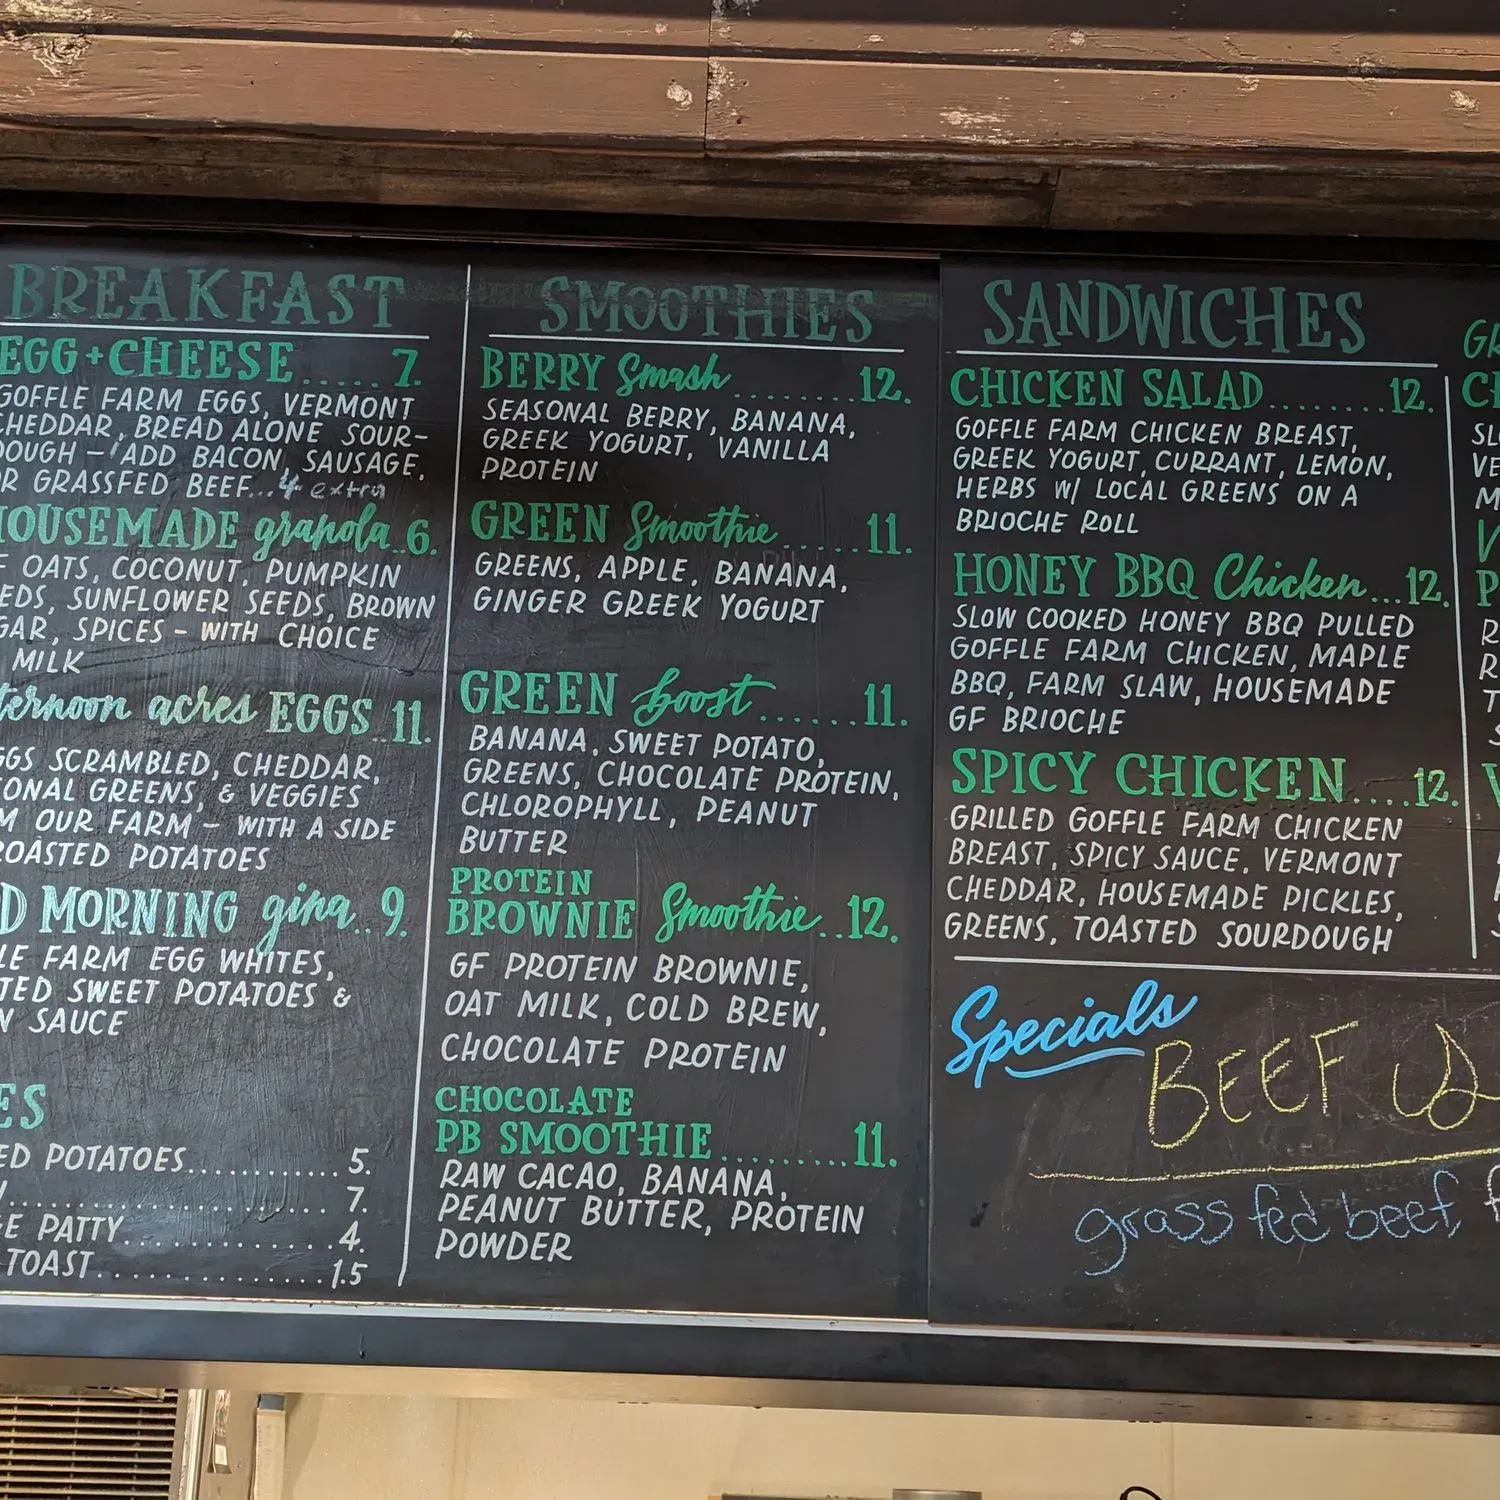 BREAKFAST
EGG + CHEESE......7.
GOFFLE FARM EGGS, VERMONT
CHEDDAR, BREAD ALONE SOUR-
DOUGH - ADD BACON, SAUSAGE,
OR GRASSFED BEEF... 4 extra
HOUSEMADE granola..6.
OATS, COCONUT, PUMPKIN
EDS, SUNFLOWER SEEDS, BROWN
GAR, SPICES - WITH CHOICE
MILK
ternoon acres EGGS..11.
GGS SCRAMBLED, CHEDDAR,
ONAL GREENS, & VEGGIES
M OUR FARM - WITH A SIDE
ROASTED POTATOES
D MORNING gina..9.
LE FARM EGG WHITES,
TED SWEET POTATOES &
N SAUCE
ES
ED POTATOES............5.
7.
GE PATTY..............4.
TOAST................1.5
SMOOTHIES
BERRY Smash........12.
SEASONAL BERRY, BANANA,
GREEK YOGURT, VANILLA
PROTEIN
GREEN Smoothie.....11.
GREENS, APPLE, BANANA,
GINGER GREEK YOGURT
GREEN boost.......11.
BANANA, SWEET POTATO,
GREENS, CHOCOLATE PROTEIN,
CHLOROPHYLL, PEANUT
BUTTER
PROTEIN
BROWNIE Smoothie..12.
GF PROTEIN BROWNIE,
OAT MILK, COLD BREW,
CHOCOLATE PROTEIN
CHOCOLATE
PB SMOOTHIE.........11.
RAW CACAO, BANANA,
PEANUT BUTTER, PROTEIN
POWDER
SANDWICHES
CHICKEN SALAD........12.
GOFFLE FARM CHICKEN BREAST,
GREEK YOGURT, CURRANT, LEMON,
HERBS W/ LOCAL GREENS ON A
BRIOCHE ROLL
HONEY BBQ Chicken...12.
SLOW COOKED HONEY BBQ PULLED
GOFFLE FARM CHICKEN, MAPLE
BBQ, FARM SLAW, HOUSEMADE
GF BRIOCHE
SPICY CHICKEN....12.
GRILLED GOFFLE FARM CHICKEN
BREAST, SPICY SAUCE, VERMONT
CHEDDAR, HOUSEMADE PICKLES,
GREENS, TOASTED SOURDOUGH
Specials
BEEF
grass fed beef,